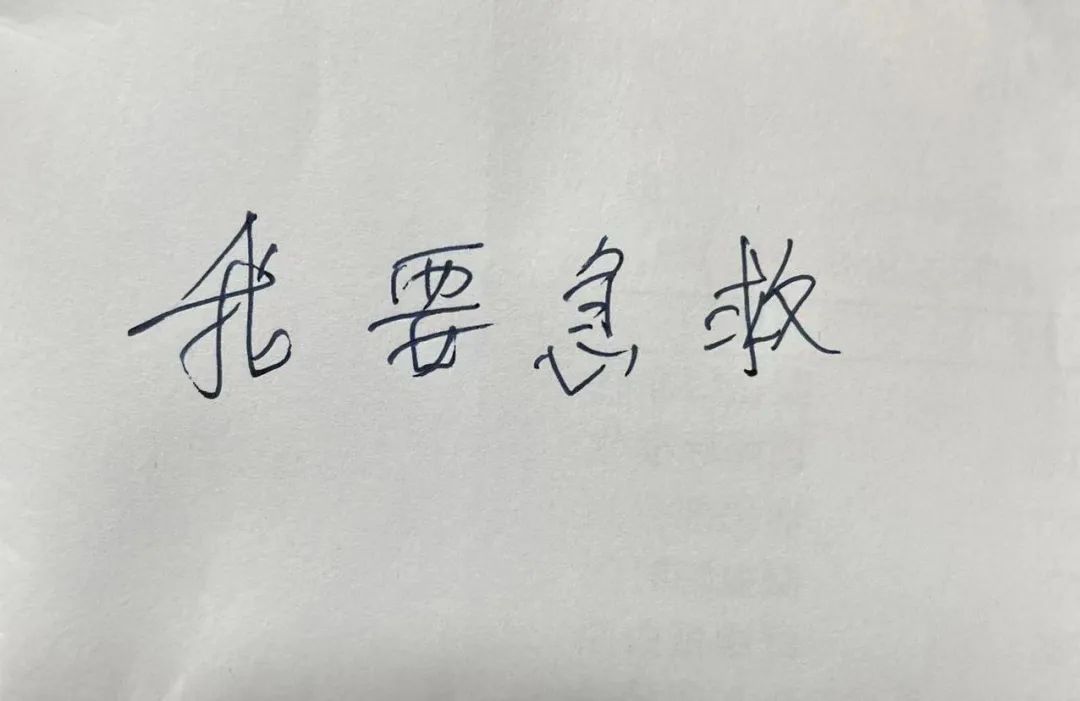 我要急救